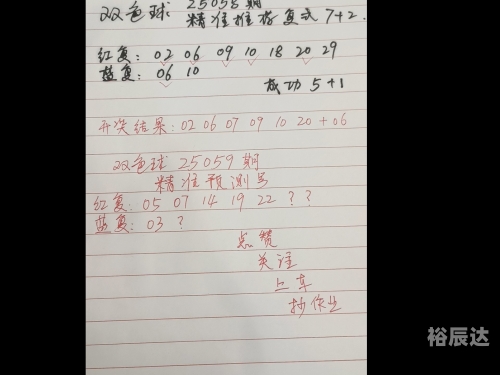 双色球 25058期
精准推荐复式 7+2.
红复: 02 06 09 10 18 20 29
蓝复: 06 10
成功 5+1
开奖结果: 02 06 07 09 10 20 + 06
双色球 25059期
精准预测号
红复: 05 07 14 19 22 ? ?
蓝复: 03 ?
点赞
关注
上车
抄作业
裕辰达